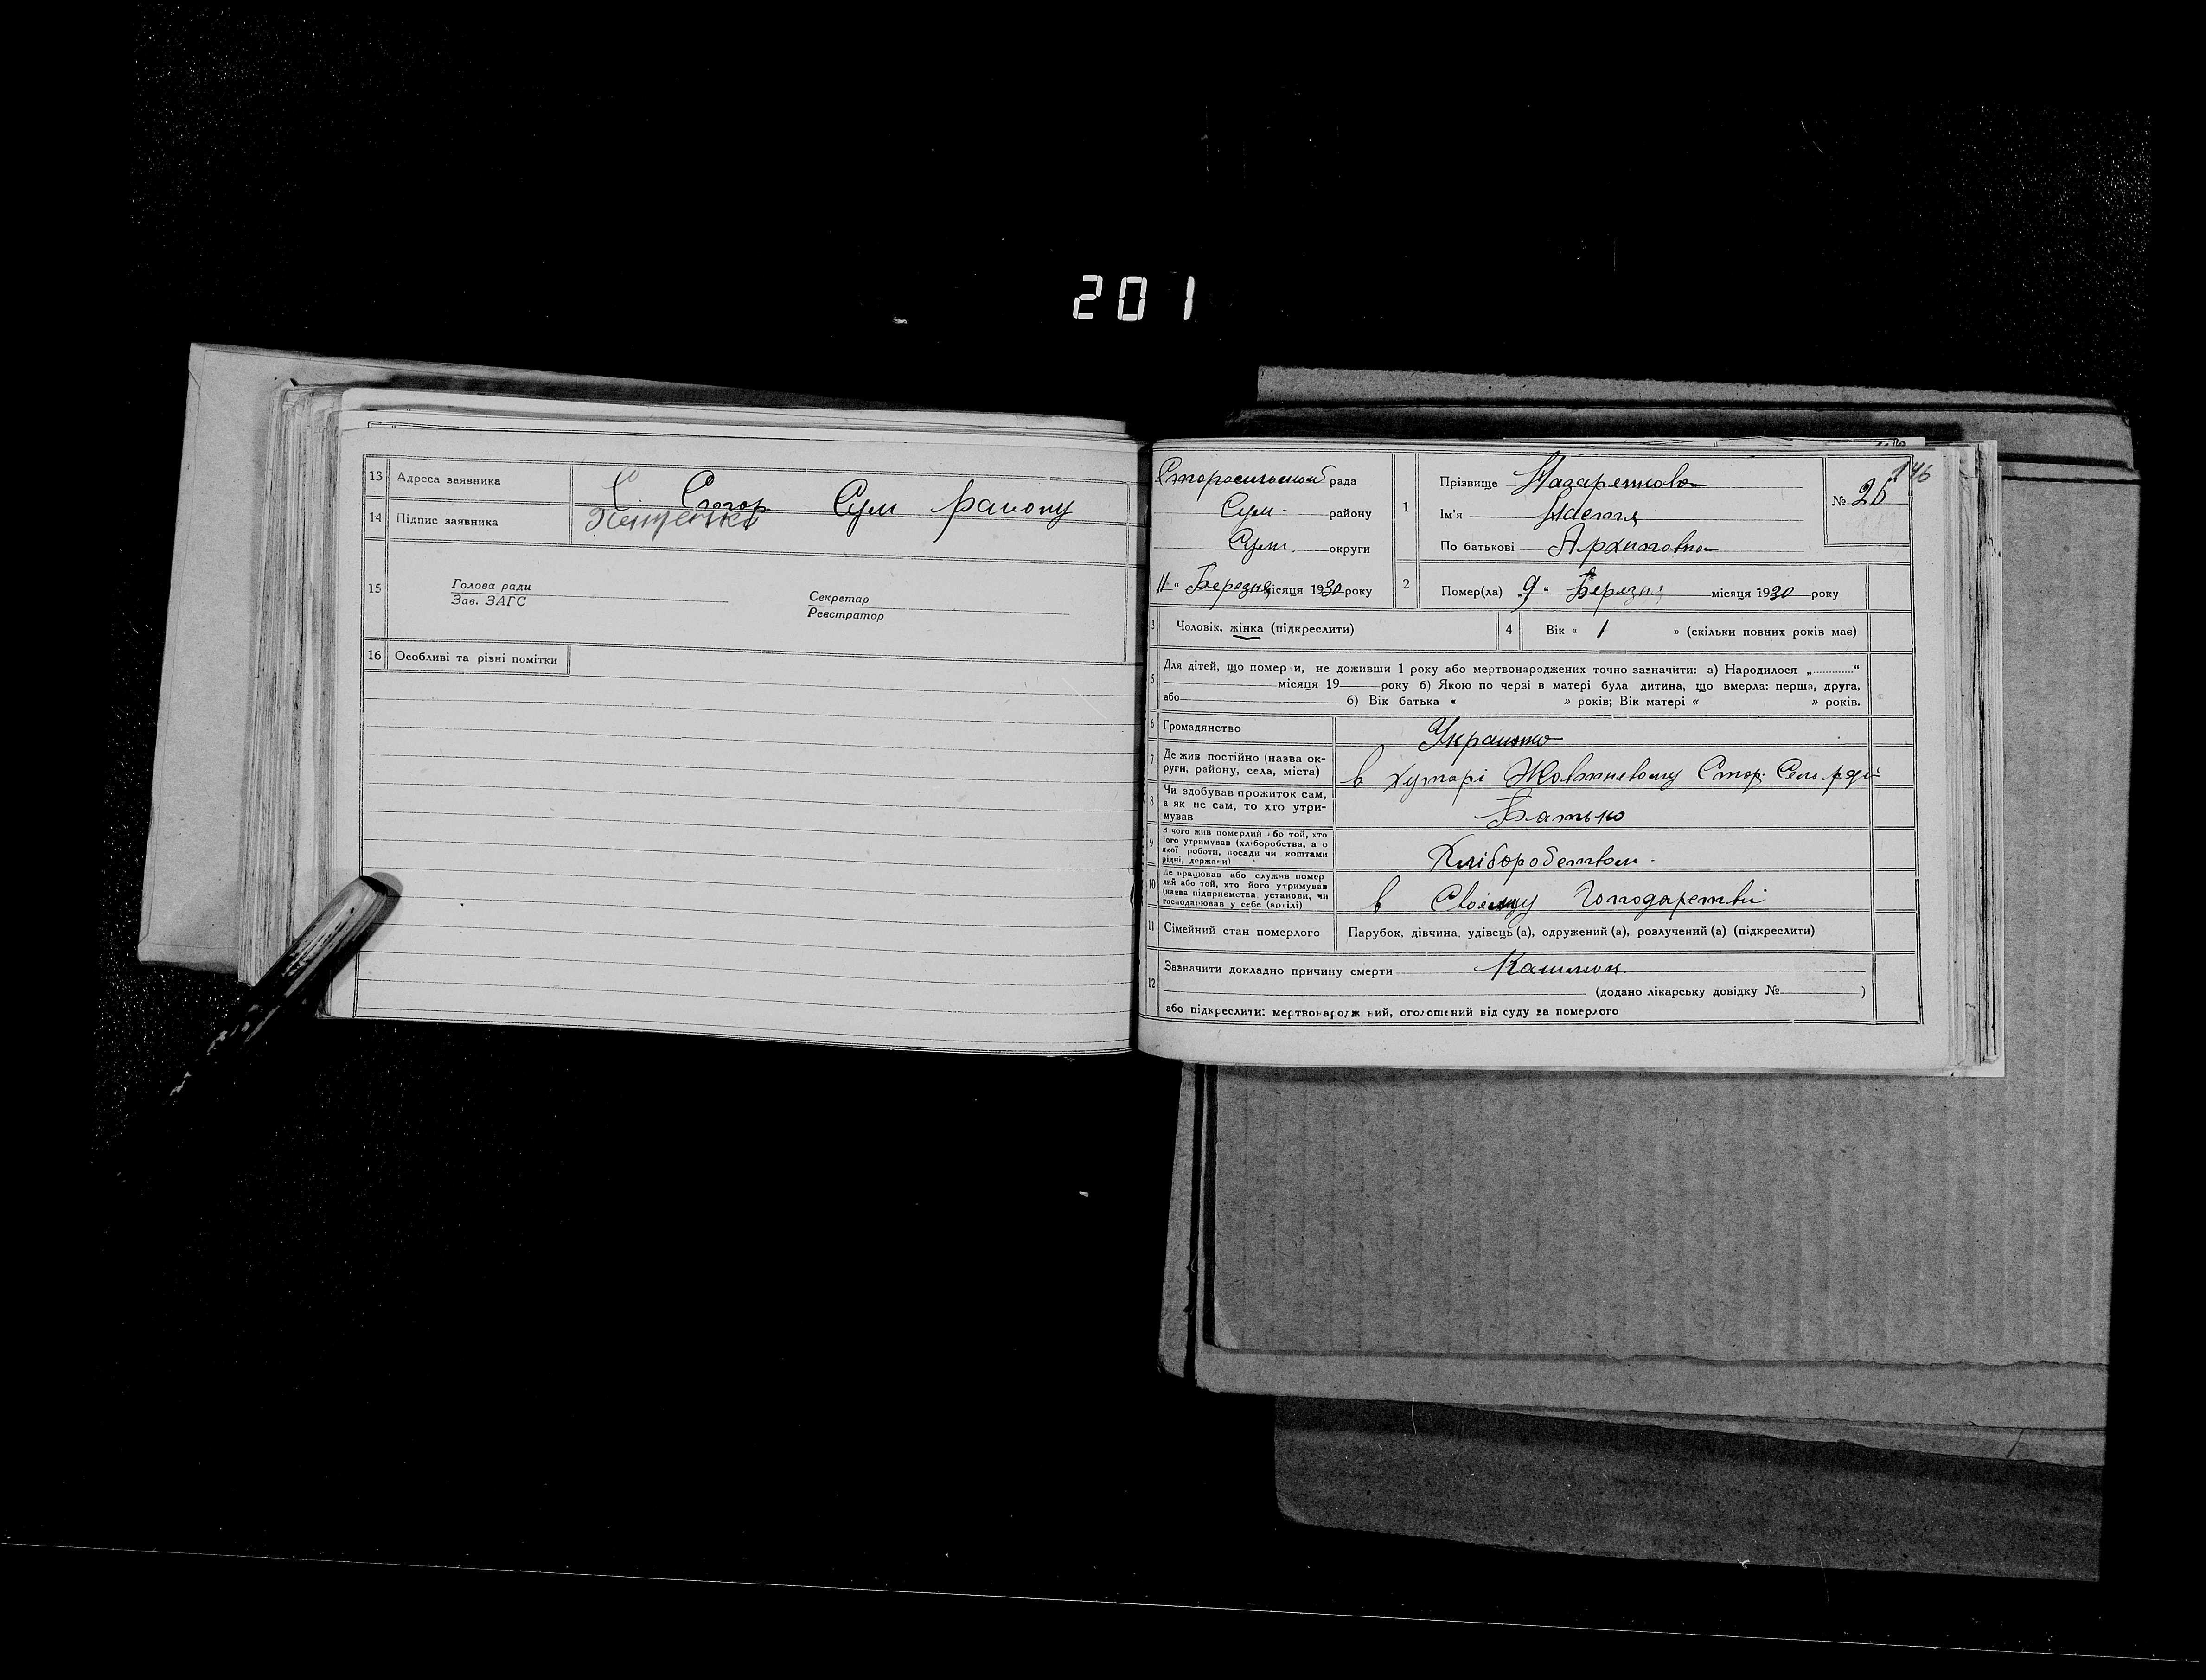 201
13 Адреса заявника С Стор. Сум району
14 Підпис заявника
15 Голова ради
Зав. ЗАГС
Секретар
Реєстратор
16 Особливі та різні помітки
146
рада
Сум. району
Сум. округи
11 " Березня місяця 1930 року
1 Прізвище Назаренкова
Ім'я Настя
По батькові Архиповна
№ 20
2 Помер(ла) „9 " Березня місяця 1930 року
3 Чоловік, жінка (підкреслити)
4 Вік « 1 » (скільки повних років має)
5 Для дітей, що померли, не доживши 1 року або мертвонароджених точно зазначити: а) Народилося „............“
місяця 19 року б) Якою по черзі в матері була дитина, що вмерла: перша, друга,
або б) Вік батька « » років; Вік матері « » років.
6 Громадянство Украінка
7 Де жив постійно (назва округи, району, села, міста) в хуторі Жовтневому Стор. Сель ради
8 Чи здобував прожиток сам,
а як не сам, то хто утримував Батько
9 З чого жив померлий або той, хто
його утримував (хліборобства, а о
якої роботи, посади чи коштами
рідні, держави) Хлібороботвом.
10 Де працював або служив померлий або той, хто його утримував
(назва підприємства установи, чи
господарював у себе (артілі) в Своєму Господарстві
11 Сімейний стан померлого Парубок, дівчина, удівець (а), одружений (а), розлучений (а) (підкреслити)
12 Зазначити докладно причину смерти Кашлюк
(додано лікарську довідку № )
або підкреслити: мертвонароджений, оголошений від суду за померлого